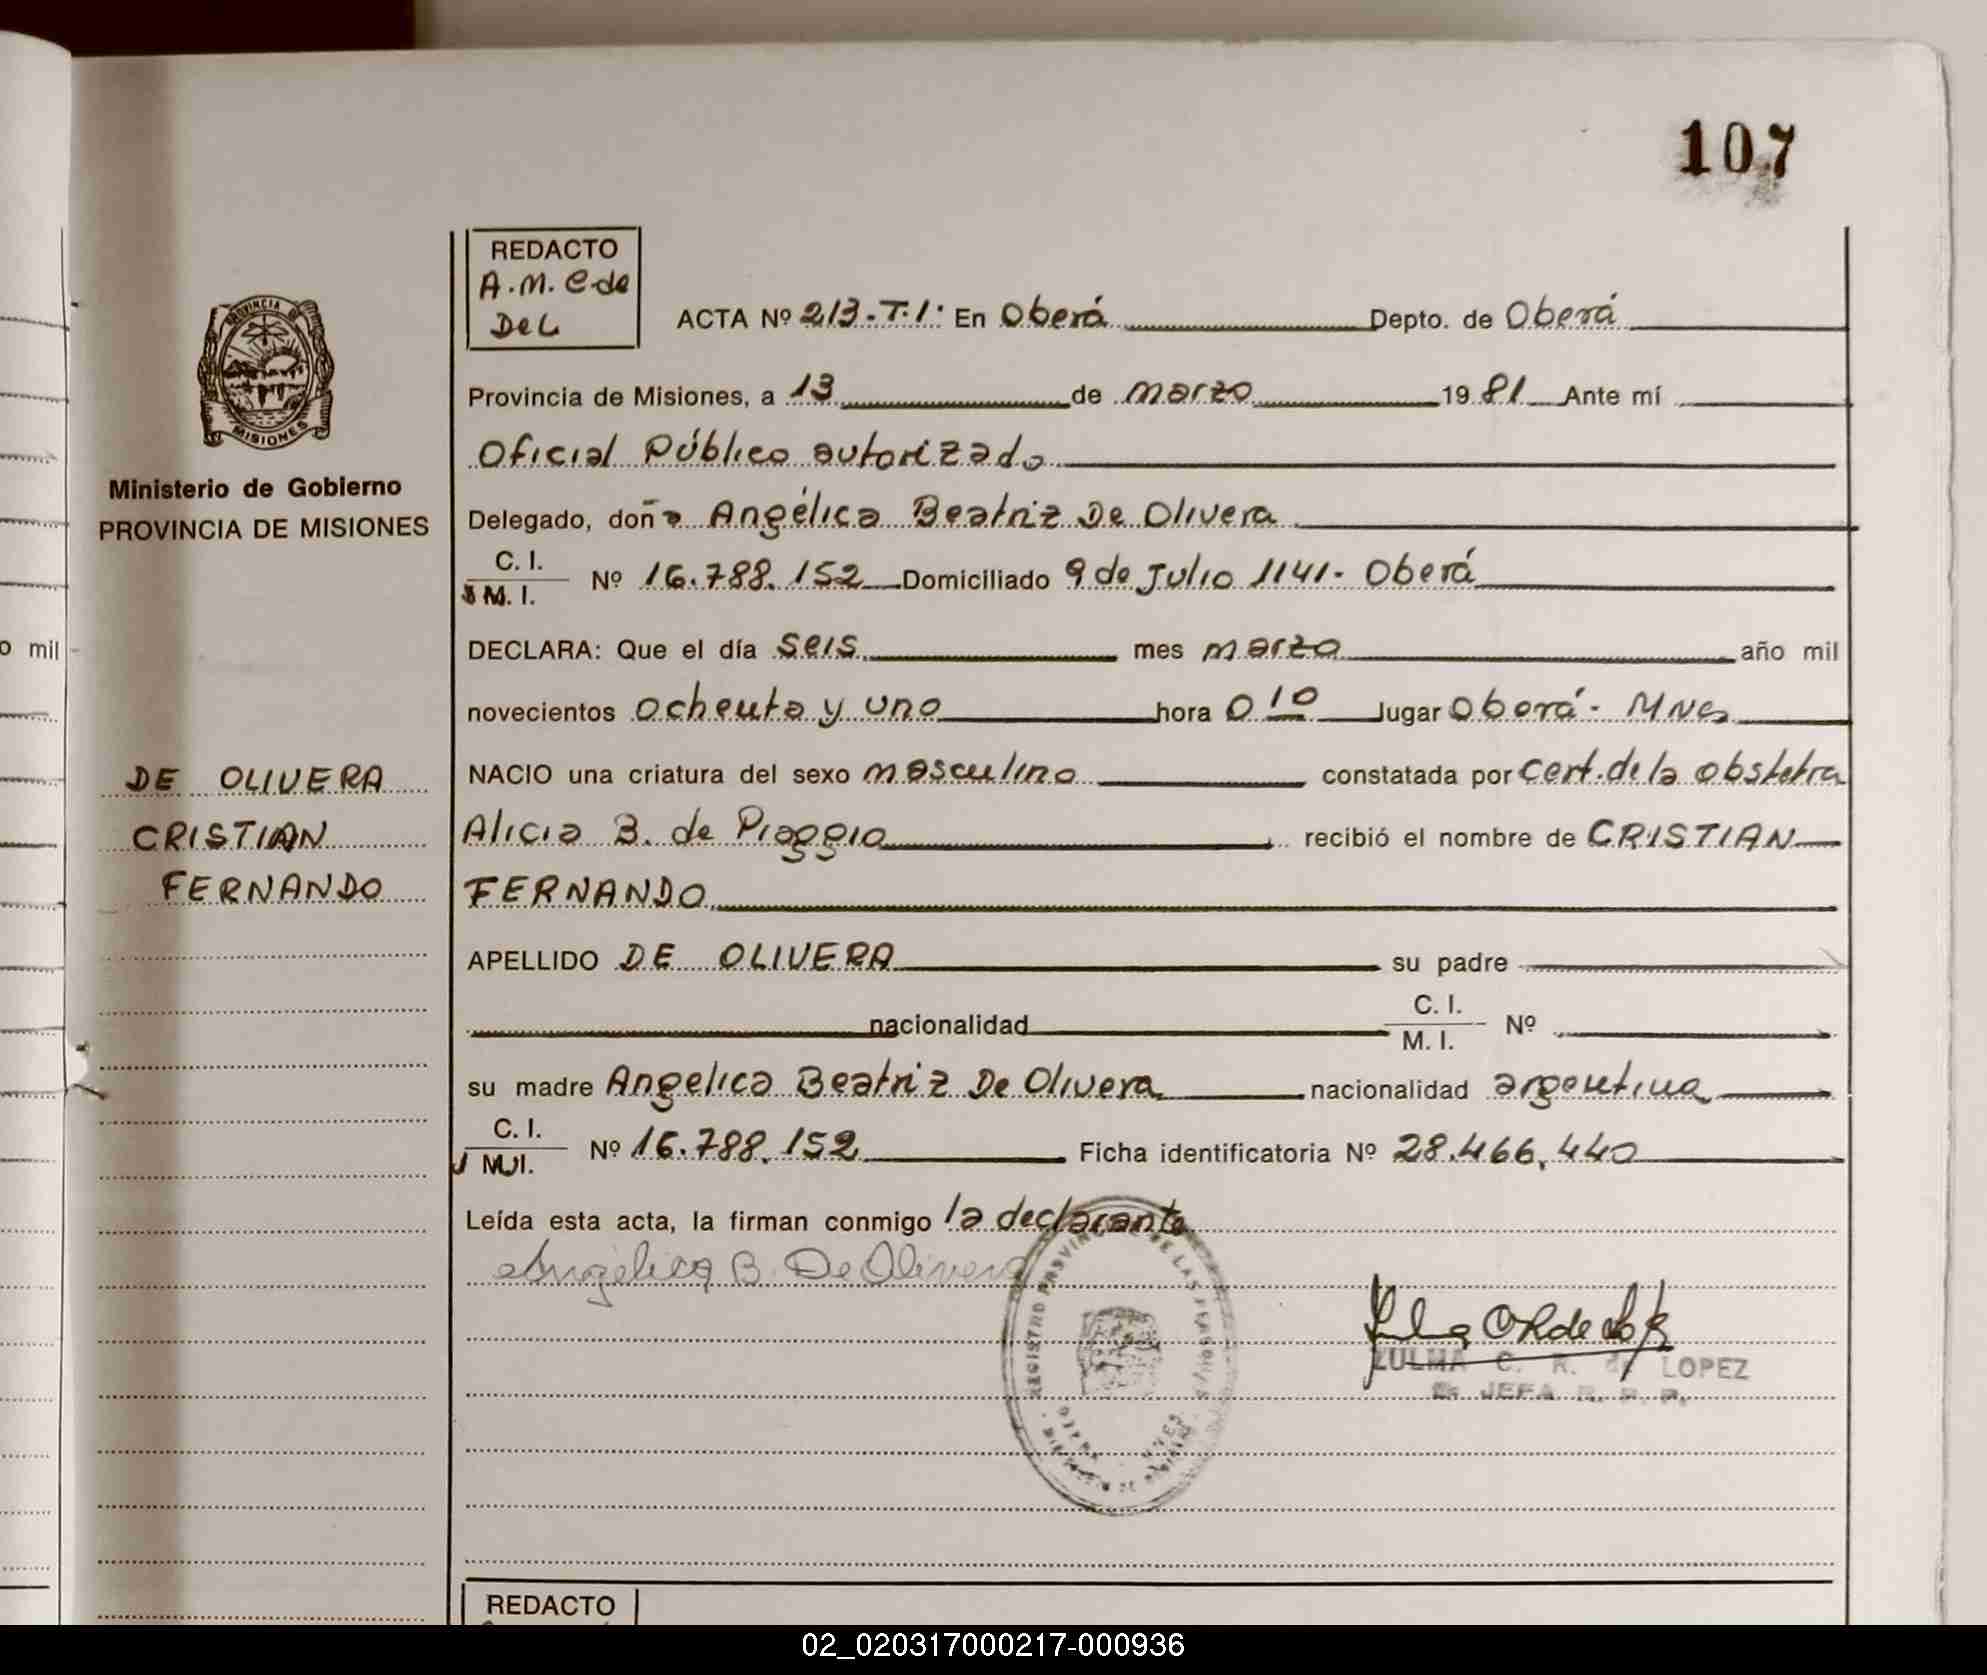 107
REDACTO
A.M.C de
DeL
ACTA Nº 213-T.I: En Oberá Depto. de Oberá
Provincia de Misiones, a 13 de marzo 1981 Ante mí
Oficial Público autorizado
Delegado, doña Angélica Beatriz De Olivera
C. I.
M. I. Nº 16.788.152 Domiciliado 9 de Julio 1141- Oberá
DECLARA: Que el día seis mes marzo año mil
novecientos ochenta y uno hora 0 10 lugar Oberá- Mnes
NACIO una criatura del sexo masculino constatada por cert. de la obstetra
Alicia B. de Piaggio recibió el nombre de CRISTIAN
FERNANDO
APELLIDO DE OLIVERA su padre
nacionalidad C. I.
M. I. Nº
su madre Angelica Beatriz De Olivera nacionalidad argentina
C. I.
M. I. Nº 16.788.152 Ficha identificatoria Nº 28.466.440
Leída esta acta, la firman conmigo la declarante
Angélica B. De Olivera
ZULMA C. R. de LOPEZ
JEFA R. P. P.
REGISTRO PROVINCIAL DE LAS PERSONAS
OBERA MNES
PROVINCIA DE
MISIONES
Ministerio de Gobierno
PROVINCIA DE MISIONES
DE OLIVERA
CRISTIAN
FERNANDO
o mil
REDACTO
02_020317000217-000936